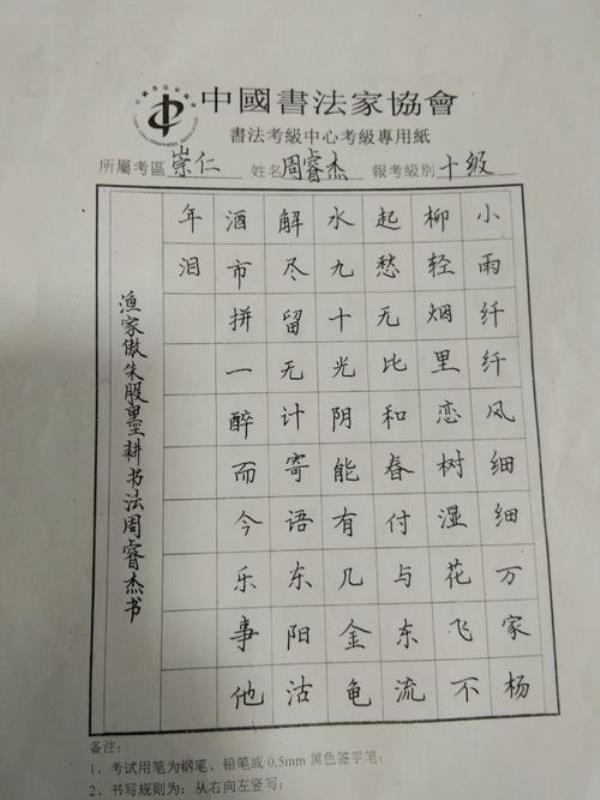 中國書法家協會
書法考級中心考級專用紙
所屬考區 崇仁 姓名 周睿杰 報考級別 十级
小雨纤纤风细细万家杨
柳轻烟里恋树湿花飞不
起愁无比和春付与东流
水九十光阴能有几金龟
解尽留无计寄语东阳沽
酒市拼一醉而今乐事他
年泪
渔家傲朱服墨耕书法周睿杰书
备注:
1、考试用笔为钢笔、铅笔或0.5mm黑色签字笔;
2、书写规则为:从右向左竖写;